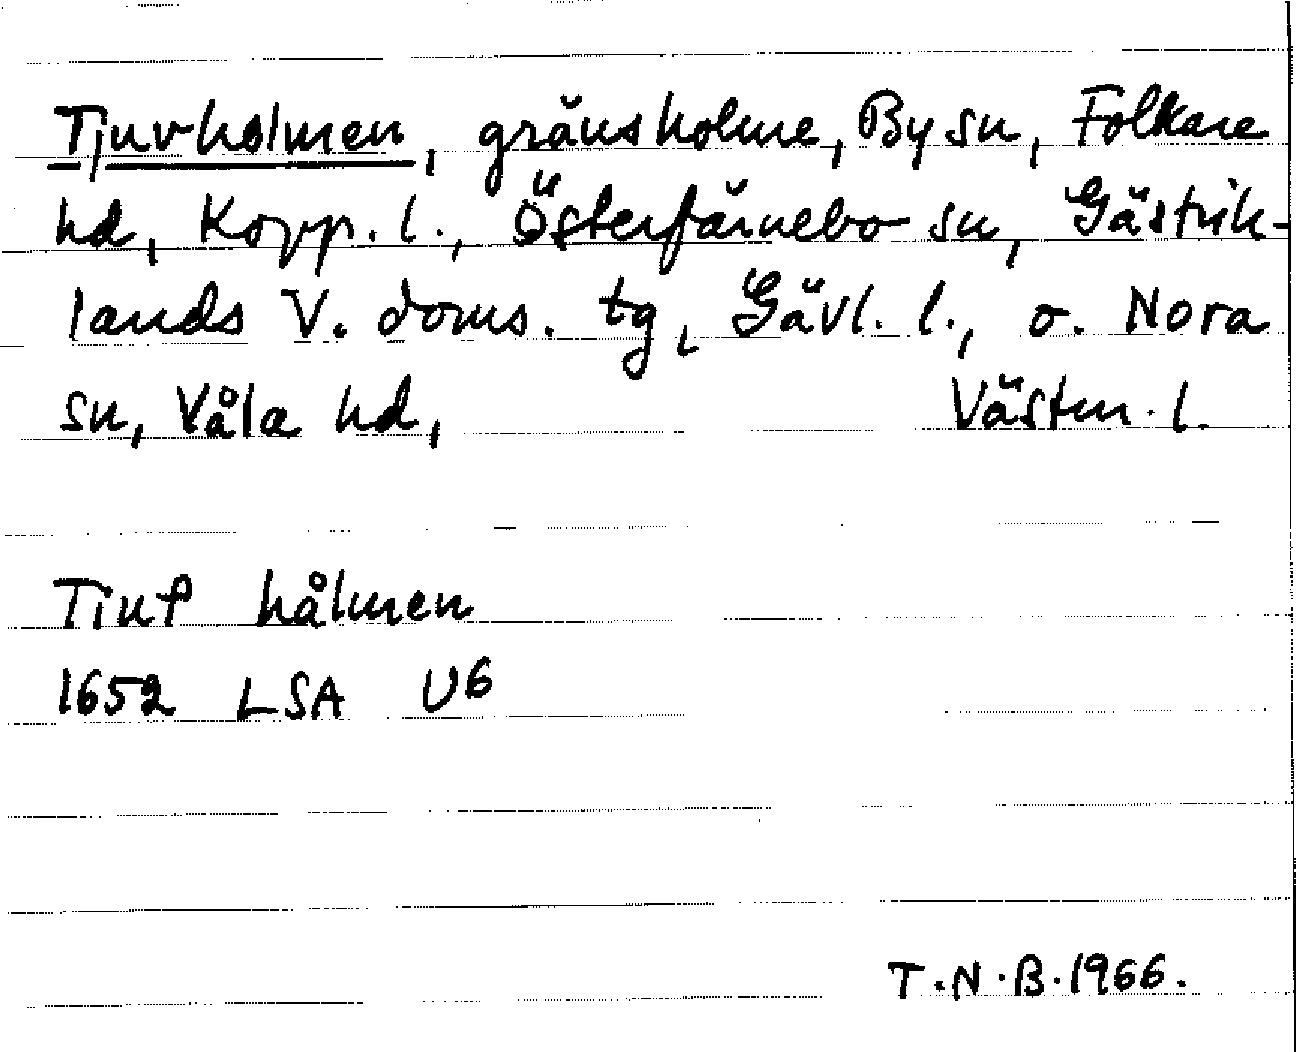 Tjuvholmen, gränsholme, By sn, Folkare
hd, Kopp. l., Österfärnebo sn, Gästrik-
lands V. doms. tg, Gävl. l., o. Nora
sn, Våla hd, Västm. l.
Tiuf hålmen
1652 LSA U6
T.N.B. 1966.